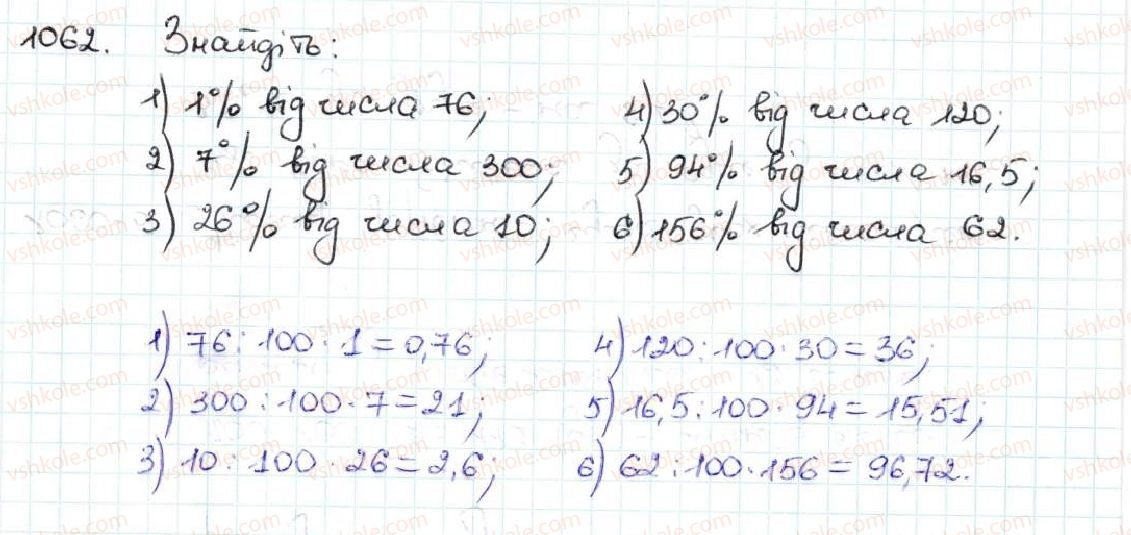 1062. Знайдіть:
1) 1% від числа 76; 4) 30% від числа 120;
2) 7% від числа 300; 5) 94% від числа 16,5;
3) 26% від числа 10; 6) 156% від числа 62.
1) 76 : 100 · 1 = 0,76; 4) 120 : 100 · 30 = 36;
2) 300 : 100 · 7 = 21; 5) 16,5 : 100 · 94 = 15,51;
3) 10 : 100 · 26 = 2,6; 6) 62 : 100 · 156 = 96,72.
vshkole.com